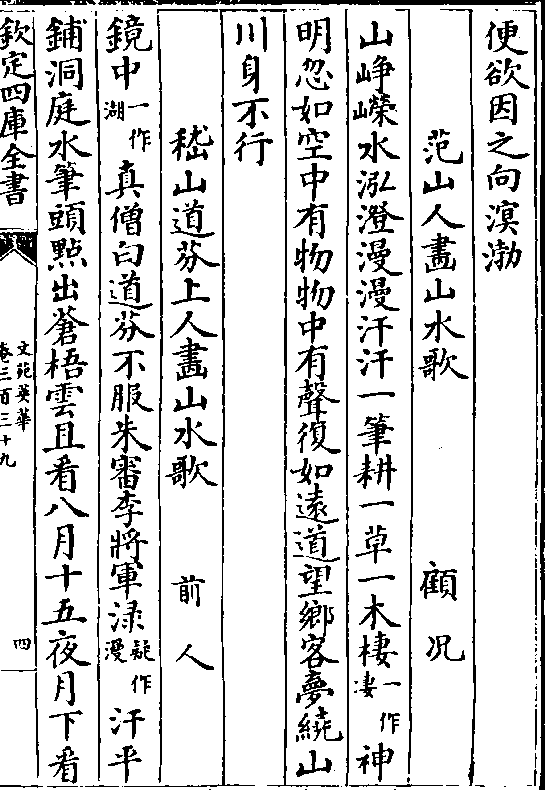 便欲因之向溟渤
范山人畫山水歌　顧况
山崢嶸水泓澄漫漫汗汗一筆耕一草一木棲一作悽神
明忽如空中有物物中有聲復如遠道望鄉客夢繞山
川身不行
嵇山道芬上人畫山水歌　前人
鏡中一作湖真僧白道芬不服朱審李將軍渌疑作漫汗平
鋪洞庭水筆頭㸃出蒼梧雲且看八月十五夜月下看
欽定四庫全書
文苑英華
卷三百三十九
四